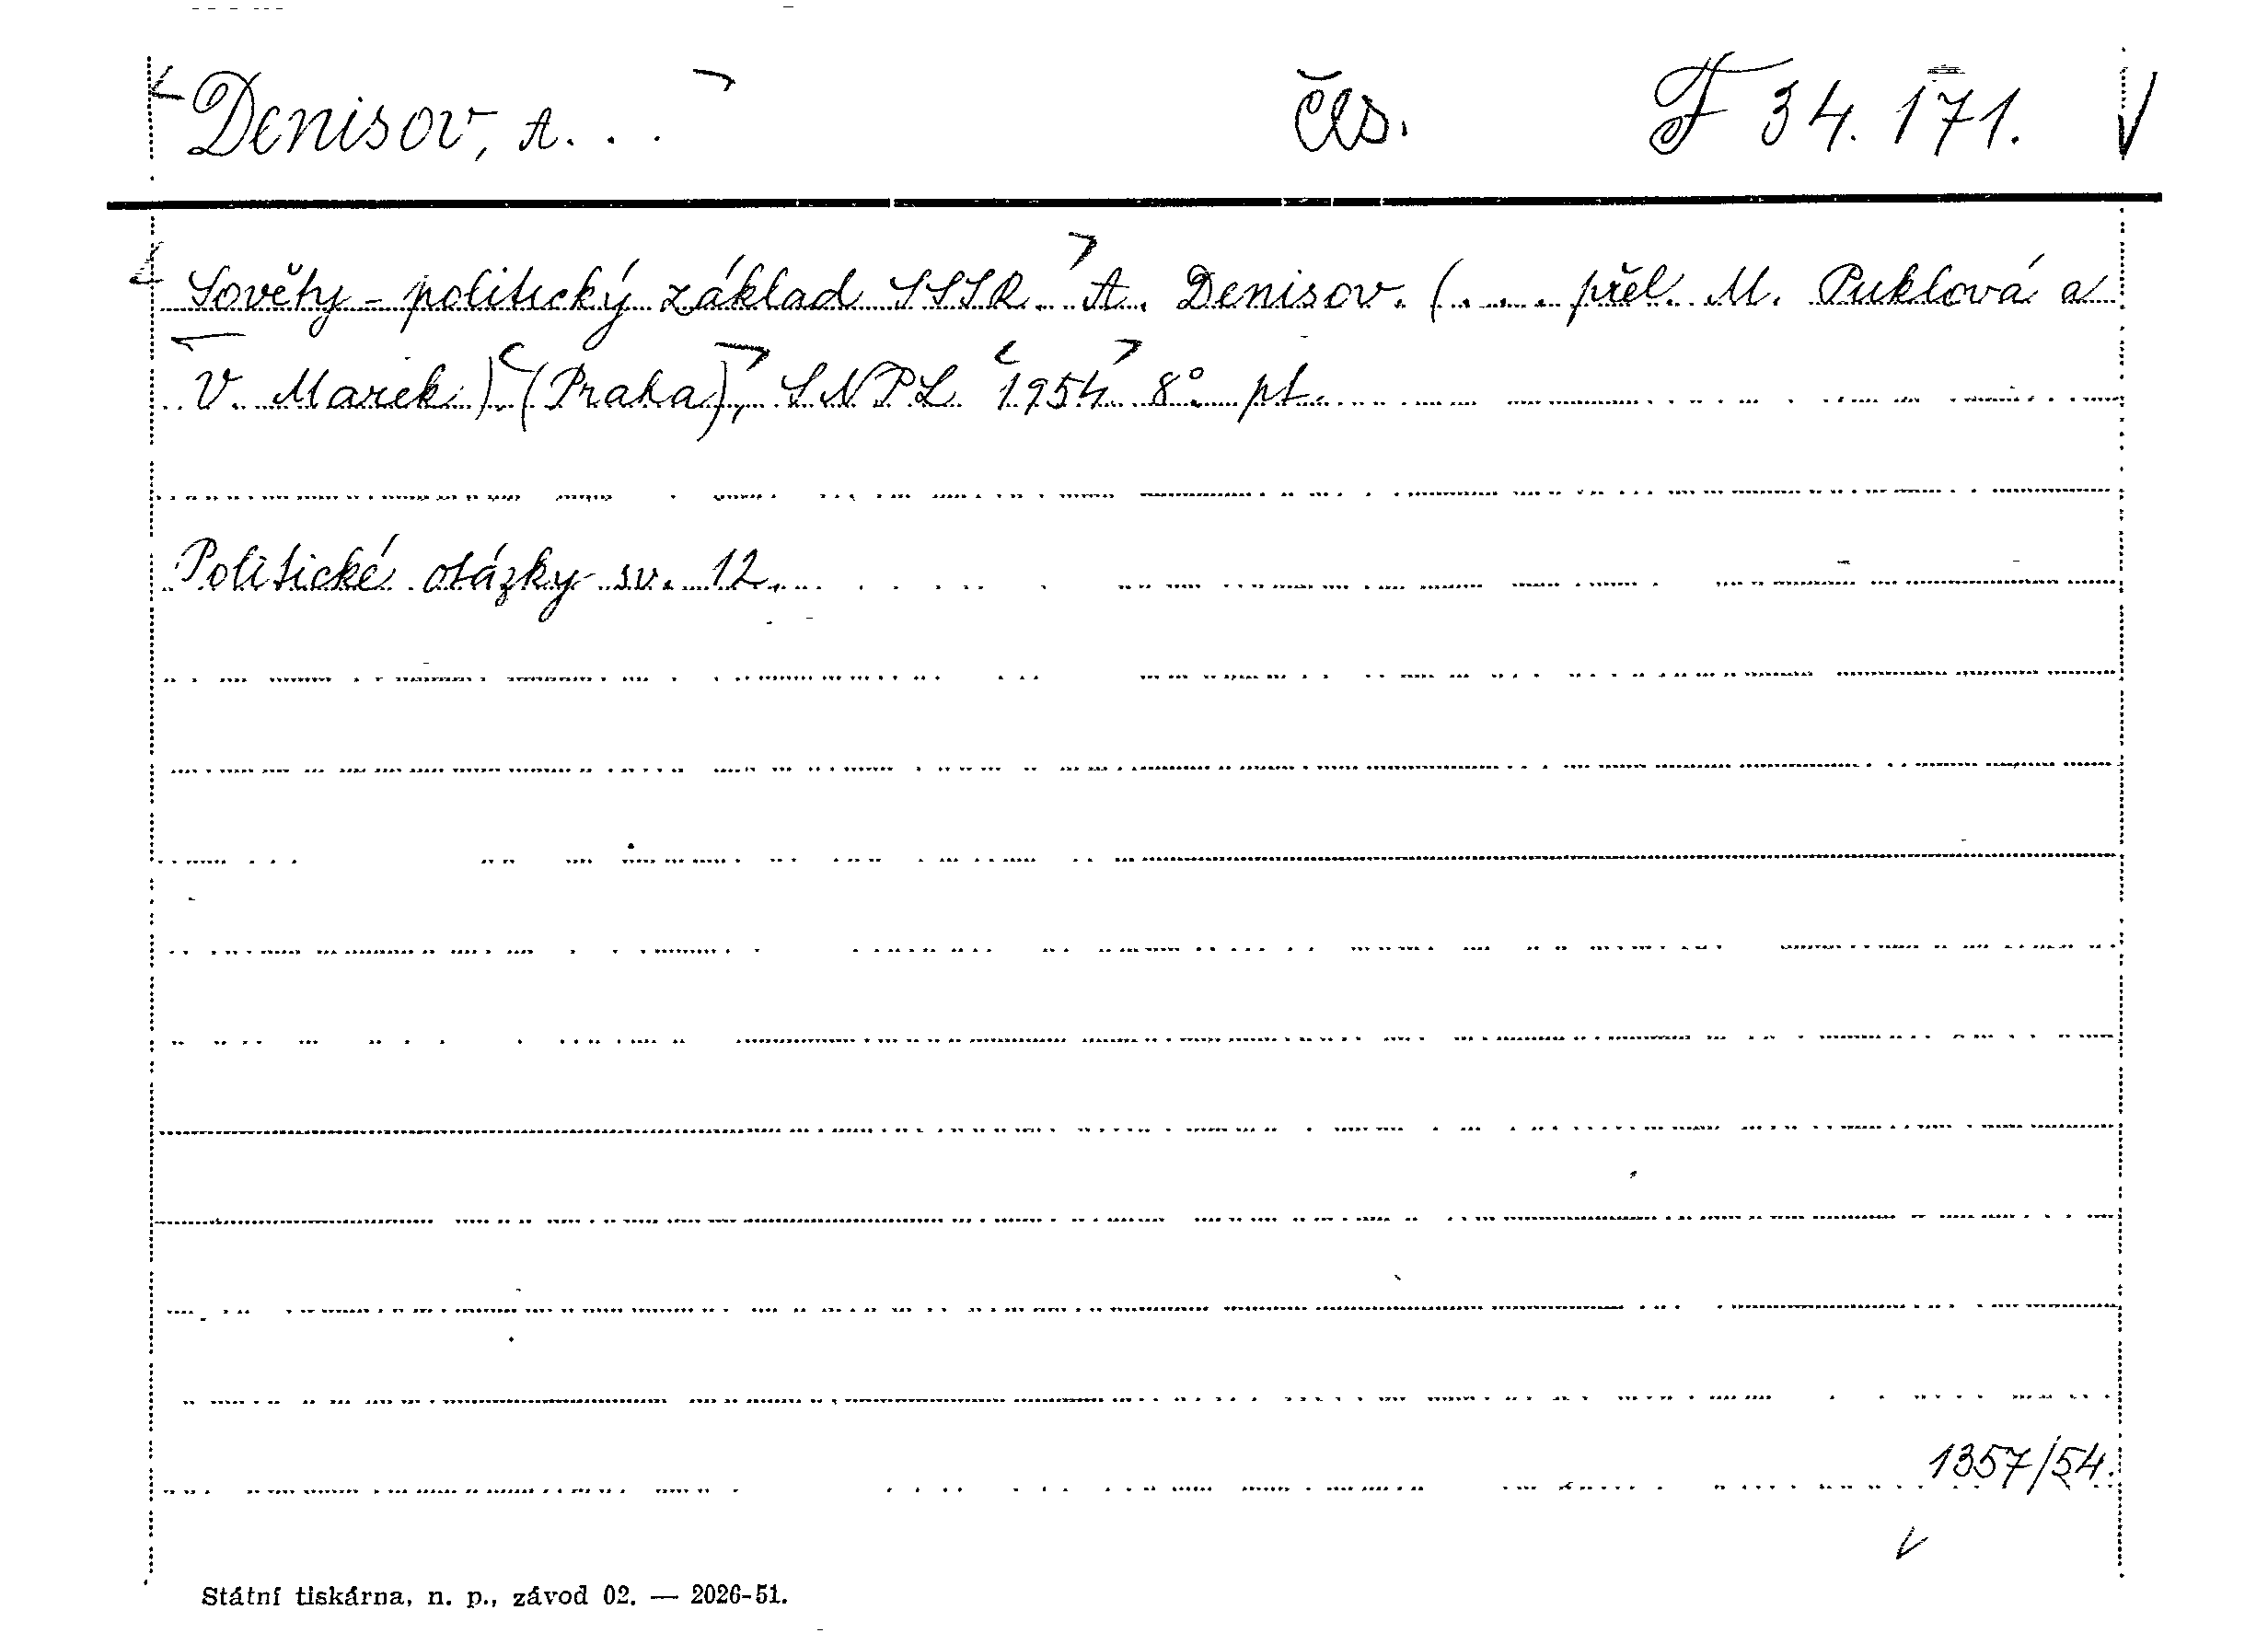 Denisov, A. . . čls. F 34.171. V
Sověty - politický základ SSSR. A. Denisov. (. . . přel. M. Puklová a
V. Marek.) (Praha), SNPL 1954 8° pt.
Politické otázky sv. 12.
1357/54.
Státní tiskárna, n. p., závod 02. — 2026-51.